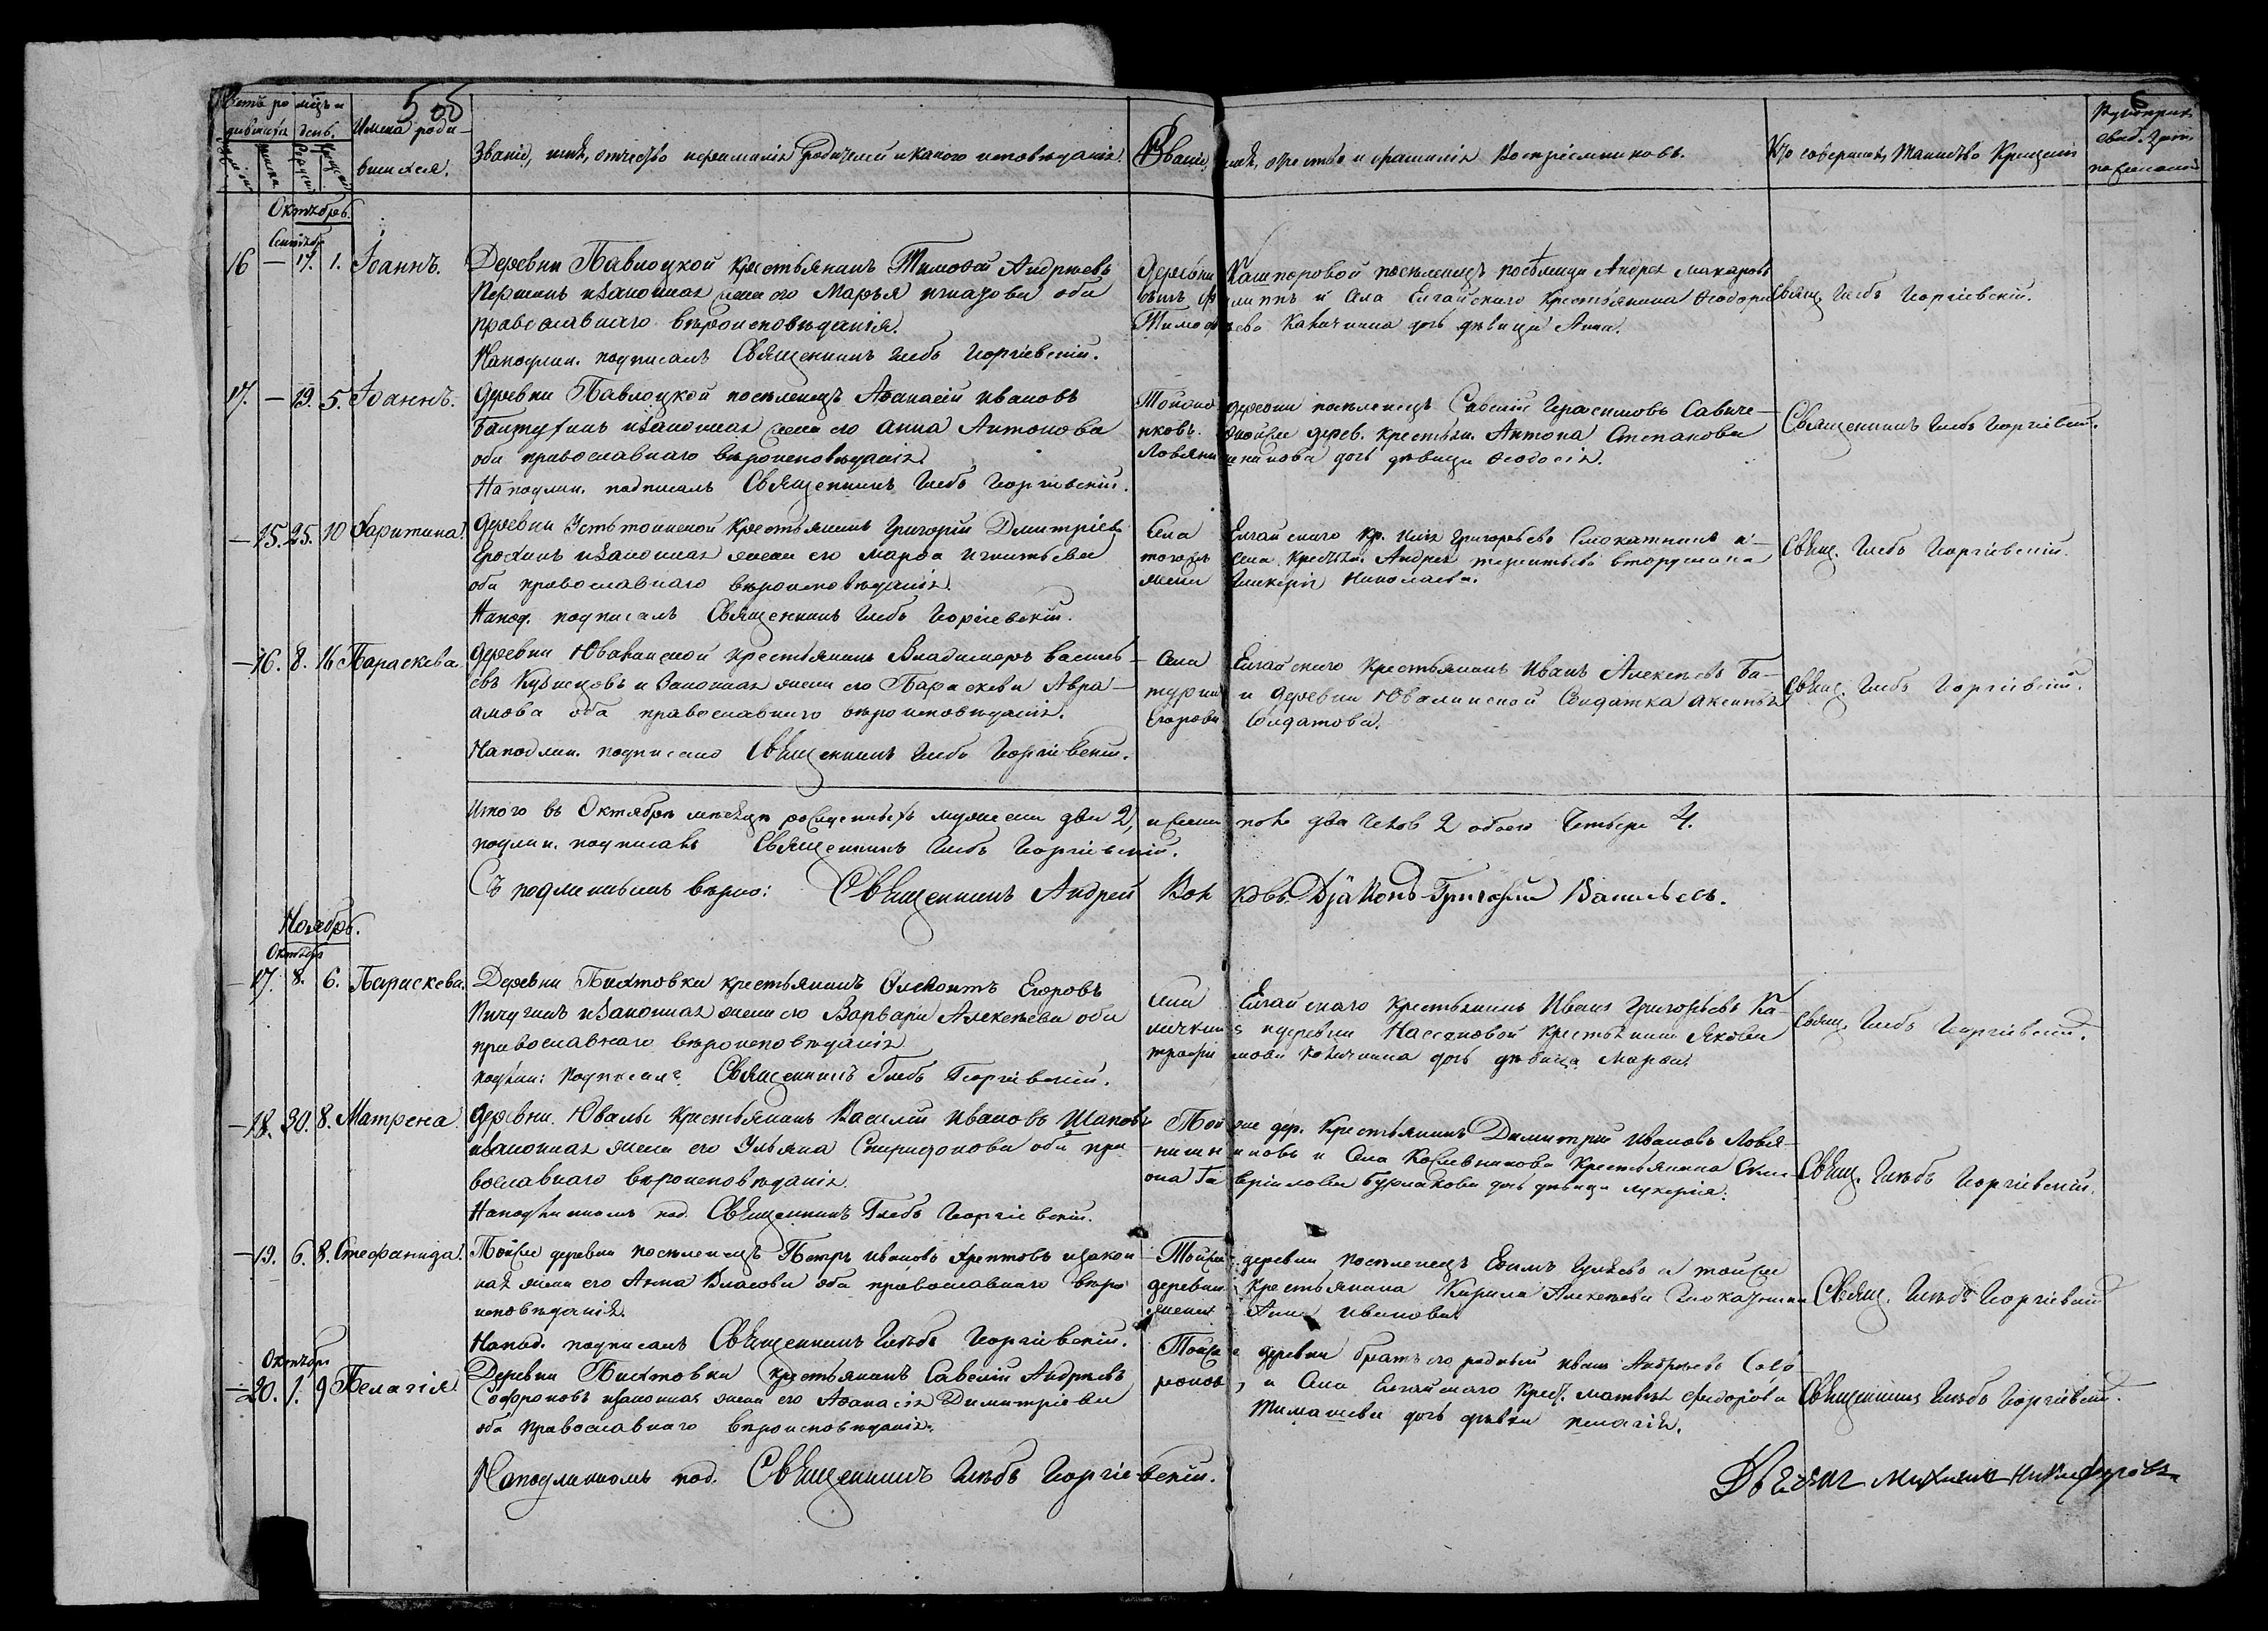 5 об
6
Счетъ родившихся
мѣсяцъ и день.
Имена родившихся.
Званіе, имя, отчество и фамилія родителей и какого исповѣданія.
Званіе, имя, отчество и фамилія Воспріемниковъ.
Кто совершалъ таинство Крещенія
Октябрь.
Сентябр
16 — 17. 1. Іоаннъ.
Деревни Павлоцкой крестьянинъ Тимофей Андреевъ
и законная жена его Марья Игнатова оба
православнаго вѣроисповѣданія.
Наподлин. подписалъ Священникъ Глебъ Георгіевскій.
Деревни Кашперовой поселенецъ Андрей Макаровъ
и села Елгайскаго Крестьянина Феодора
Тимофеева Калачкина дочь дѣвица Анна.
Свящ. Глебъ Георгіевскій.
17. — 29. 5. Іоаннъ.
Деревни Павлоцкой поселенецъ Афанасій Ивановъ
и законная жена его Анна Антонова
оба православнаго вѣроисповѣданія.
Наподлин. подписалъ Священникъ Глебъ Георгіевскій.
Тойже деревни поселенецъ Савелій Герасимовъ Савиче-
нковъ. и тойже дерев. крестьян. Антона Степанова
дочь дѣвица Феодосія.
Священникъ Глебъ Георгіевскій.
— 15. 25. 10 Харитина.
Деревни Устьтоинской Крестьянинъ Григорій Дмитріевъ
Ерохинъ и законная жена его Марфа Игнатьева
оба православнаго вѣроисповѣданія.
Напод. подписалъ Священникъ Глебъ Георгіевскій.
Села Елгайскаго кр. Илья Григорьевъ и
тогожъ села крестьян. Андрея Терентьева
жена Гликерія Николаева.
Свящ. Глебъ Георгіевскій.
— 16. 8. 16 Параскева.
Деревни Ювалинской крестьянинъ Владимеръ Василь-
евъ Кузнецовъ и законная жена его Параскева Авра-
амова оба православнаго вѣроисповѣданія.
Наподлин. подписано Священникъ Глебъ Георгіевскій.
Села Елгайскаго крестьянинъ Иванъ Алексеевъ Ба-
туринъ и деревни Ювалинской Солдатка Аксинья
Егорова Солдатова.
Свящ. Глебъ Георгіевскій.
Итого въ Октябрѣ мѣсяцѣ рожденныхъ мужеска два 2, и женска пола два человѣк 2 обоего Четыре 4.
подлин. подписалъ Священникъ Глебъ Георгіевскій.
Съ подлиннымъ вѣрно: Священникъ Андрей Діаконъ Григорій Васильевъ.
Ноябрь.
Октябр
— 17. 8. 6. Параскева.
Деревни Пихтовки крестьянинъ Егоровъ
Пичугинъ и законная жена его Варвара Алексеева оба
православнаго вѣроисповѣданія
подлин: подписалъ Священникъ Глебъ Георгіевскій.
Села Елгайскаго Крестьянинъ Иванъ Григорьевъ Ка-
личкинъ и деревни Крестьянина Якова
Трофимова дочь дѣвица Марфа.
Свящ. Глебъ Георгіевскій.
— 18. 30. 8. Матрена.
Деревни Ювалы Крестьянинъ Василій Ивановъ
и законная жена его Ульяна Спиридонова оба пра-
вославнаго вѣроисповѣданія.
Наподлинномъ под. Священникъ Глебъ Георгіевскій.
Той же дер. Крестьянинъ Димитрій Ивановъ
и села Кожевникова Крестьянина
Гавріилова Бурлакова дочь дѣвица Лукерія.
Свящ. Глѣбъ Георгіевскій.
— 19. 6. 8. Стефанида.
Тойже деревни поселенецъ Петръ Ивановъ и закон
ная жена его Анна Власова оба православнаго вѣро
исповѣданія.
Напод. подписалъ Священникъ Глѣбъ Георгіевскій.
Тойже деревни поселенецъ Ефимъ и тойже
деревни Крестьянина Кирила Алексеева
жена Анна Иванова.
Свящ. Глѣбъ Георгіевскій
Октябр
— 20. 1. 9 Пелагія.
Деревни Пихтовки крестьянинъ Савелій Андреевъ
Софроновъ и законная жена его Афанасія Димитріева
оба Православнаго вѣроисповѣданія.
Наподлинномъ под. Священникъ Глѣбъ Георгіевскій.
Тойже деревни братъ его родный Иванъ Андреевъ Соф-
роновъ, и села Елгайскаго Крест. Матвѣя Федорова
Тимашева дочь дѣвка Пелагія.
Священникъ Глѣбъ Георгіевскій.
Михаилъ Никифоровъ